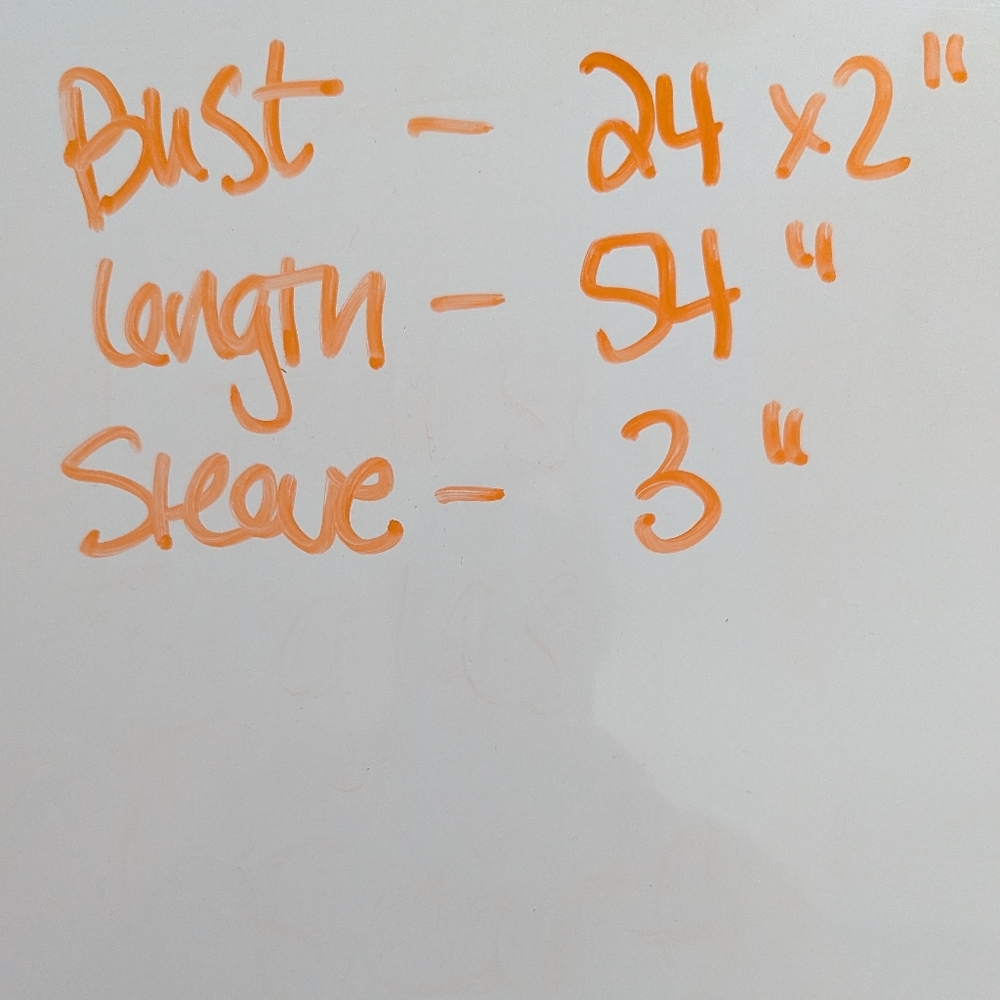 Bust - 24 x2"
Length - 54"
Sleeve - 3"